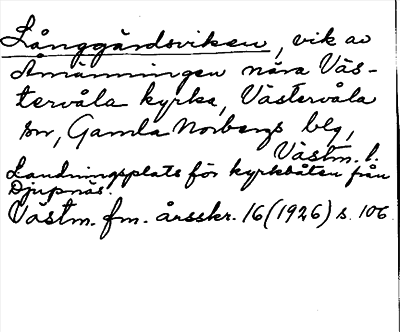 Långgärdsviken, vik av
Åmänningen nära Väs-
tervåla kyrka, Västervåla
sn, Gamla Norbergs blg,
Västm. l.
Landningsplats för kyrkbåten från
Djupnäs.
Västm. fm. årsskr. 16 (1926) s. 106.